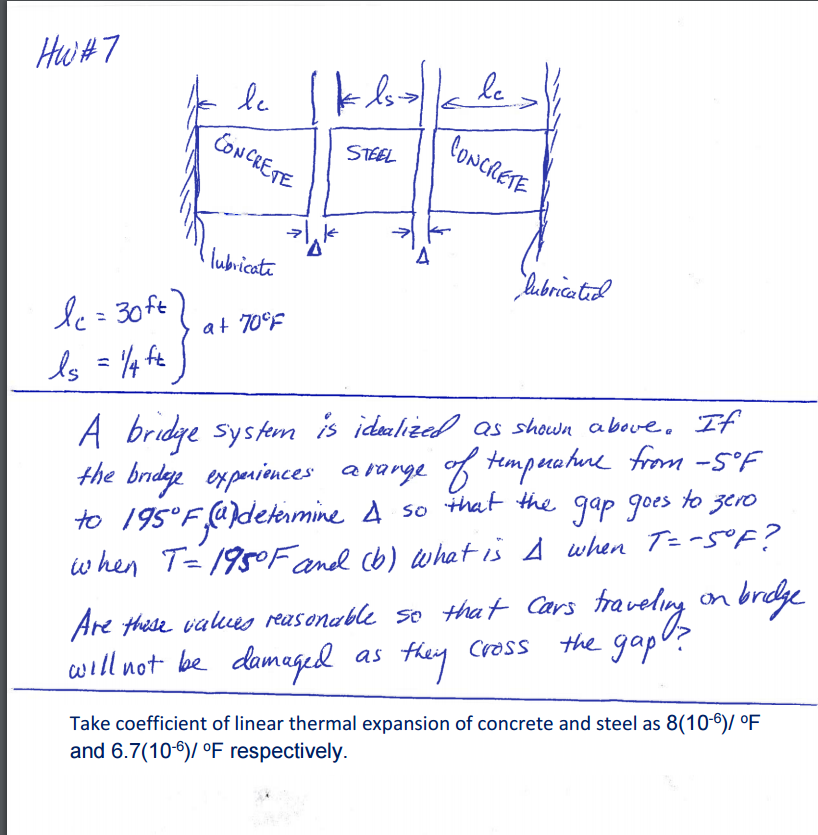 HW#7
lc ls lc
CONCRETE STEEL CONCRETE
Δ Δ
lubricate lubricated
lc = 30 ft
ls = 1/4 ft } at 70°F
A bridge system is idealized as shown above. If
the bridge experiences a range of temperature from -5°F
to 195°F, (a) determine Δ so that the gap goes to zero
when T= 195°F and (b) what is Δ when T= -5°F?
Are these values reasonable so that cars traveling on bridge
will not be damaged as they cross the gap?
Take coefficient of linear thermal expansion of concrete and steel as 8(10⁻⁶)/ ⁰F
and 6.7(10⁻⁶)/ ⁰F respectively.